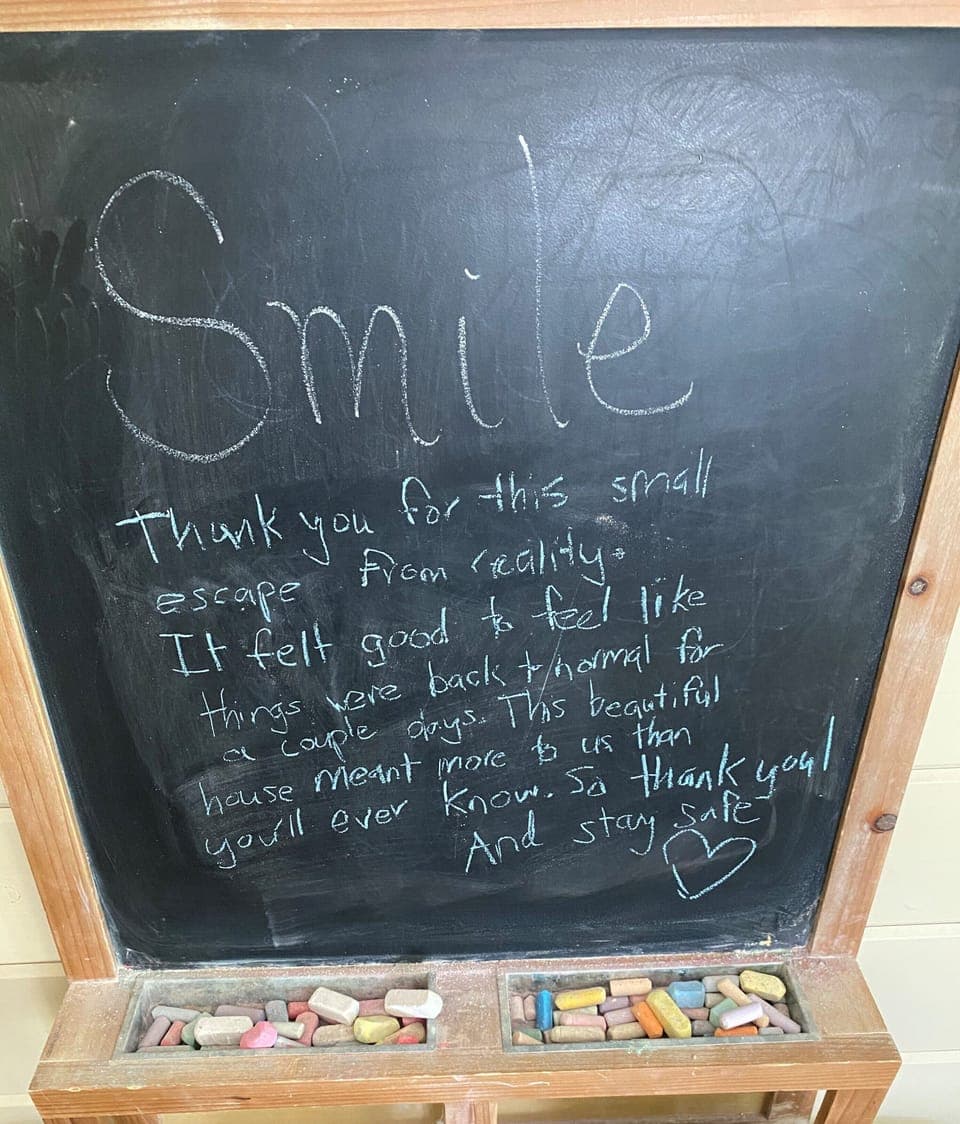 Smile
Thank you for this small
escape from reality.
It felt good to feel like
things were back to normal for
a couple days. This beautiful
house meant more to us than
you'll ever know. So thank you!
And stay safe